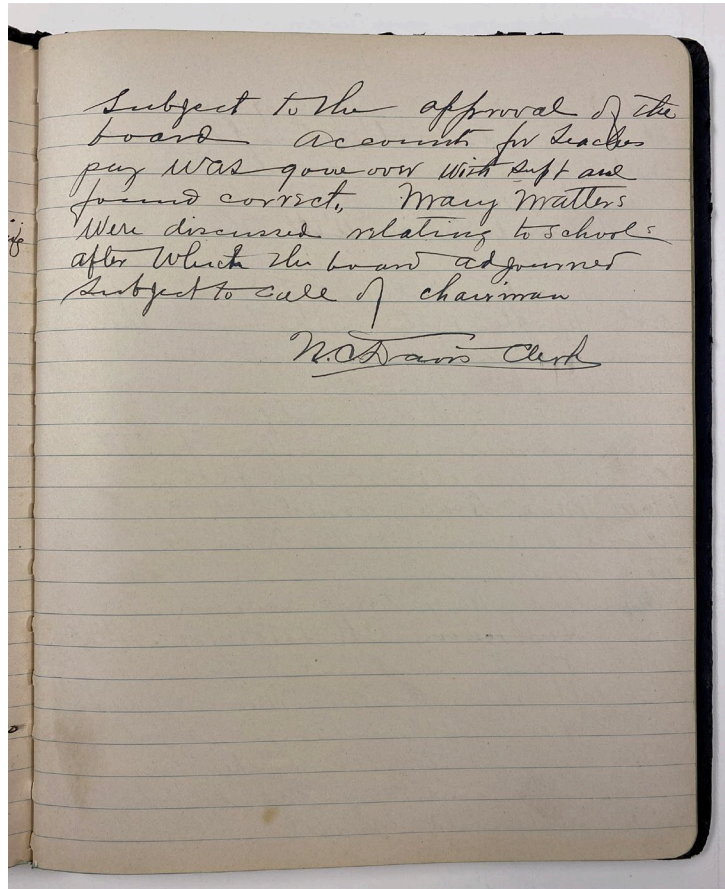 Subject to the approval of the
board accounts for teachers
pay was gone over with supt and
found correct. Many matters
were discussed relating to schools
after which the board adjourned
subject to call of chairman
N.C. Davis Clerk